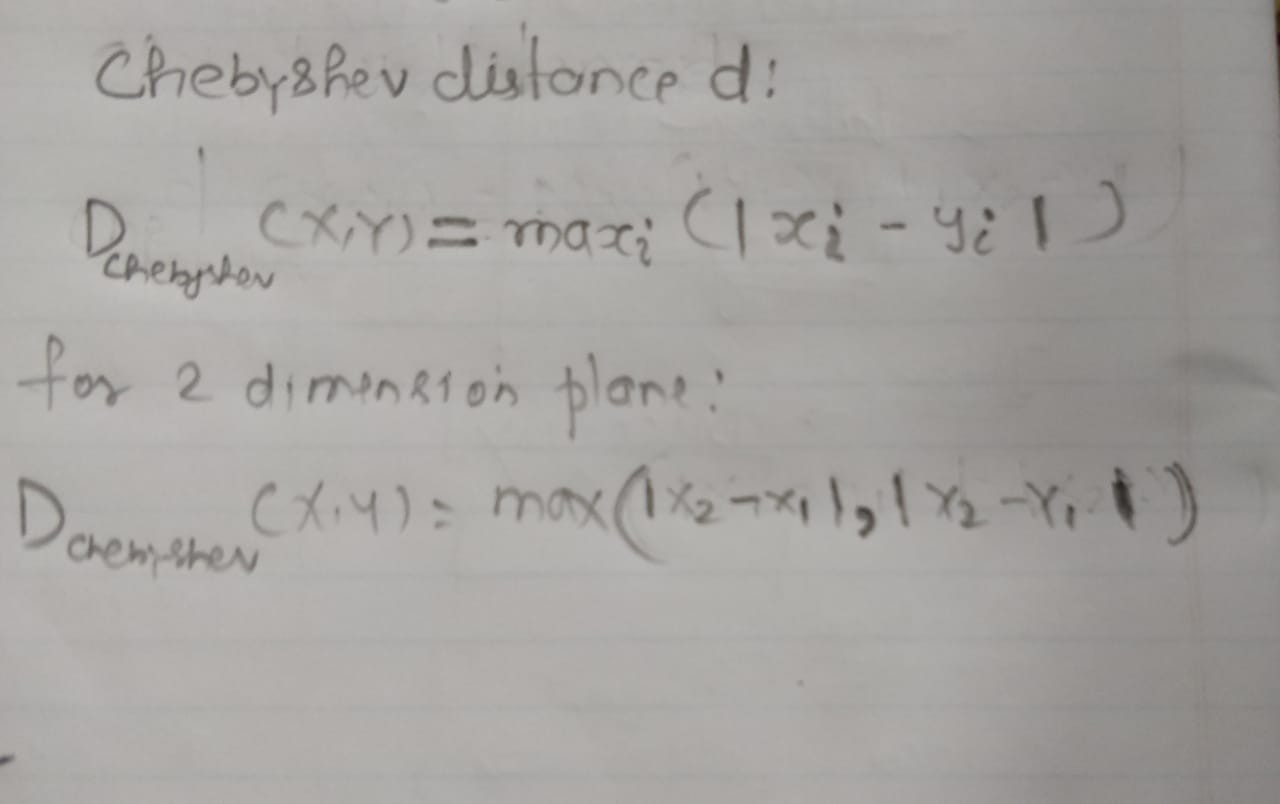 Chebyshev distance d:
D_chebyshev (X,Y) = max_i (|x_i - y_i|)
for 2 dimension plane:
D_chebyshev (X,Y) = max(|x_2 - x_1|, |Y_2 - Y_1|)